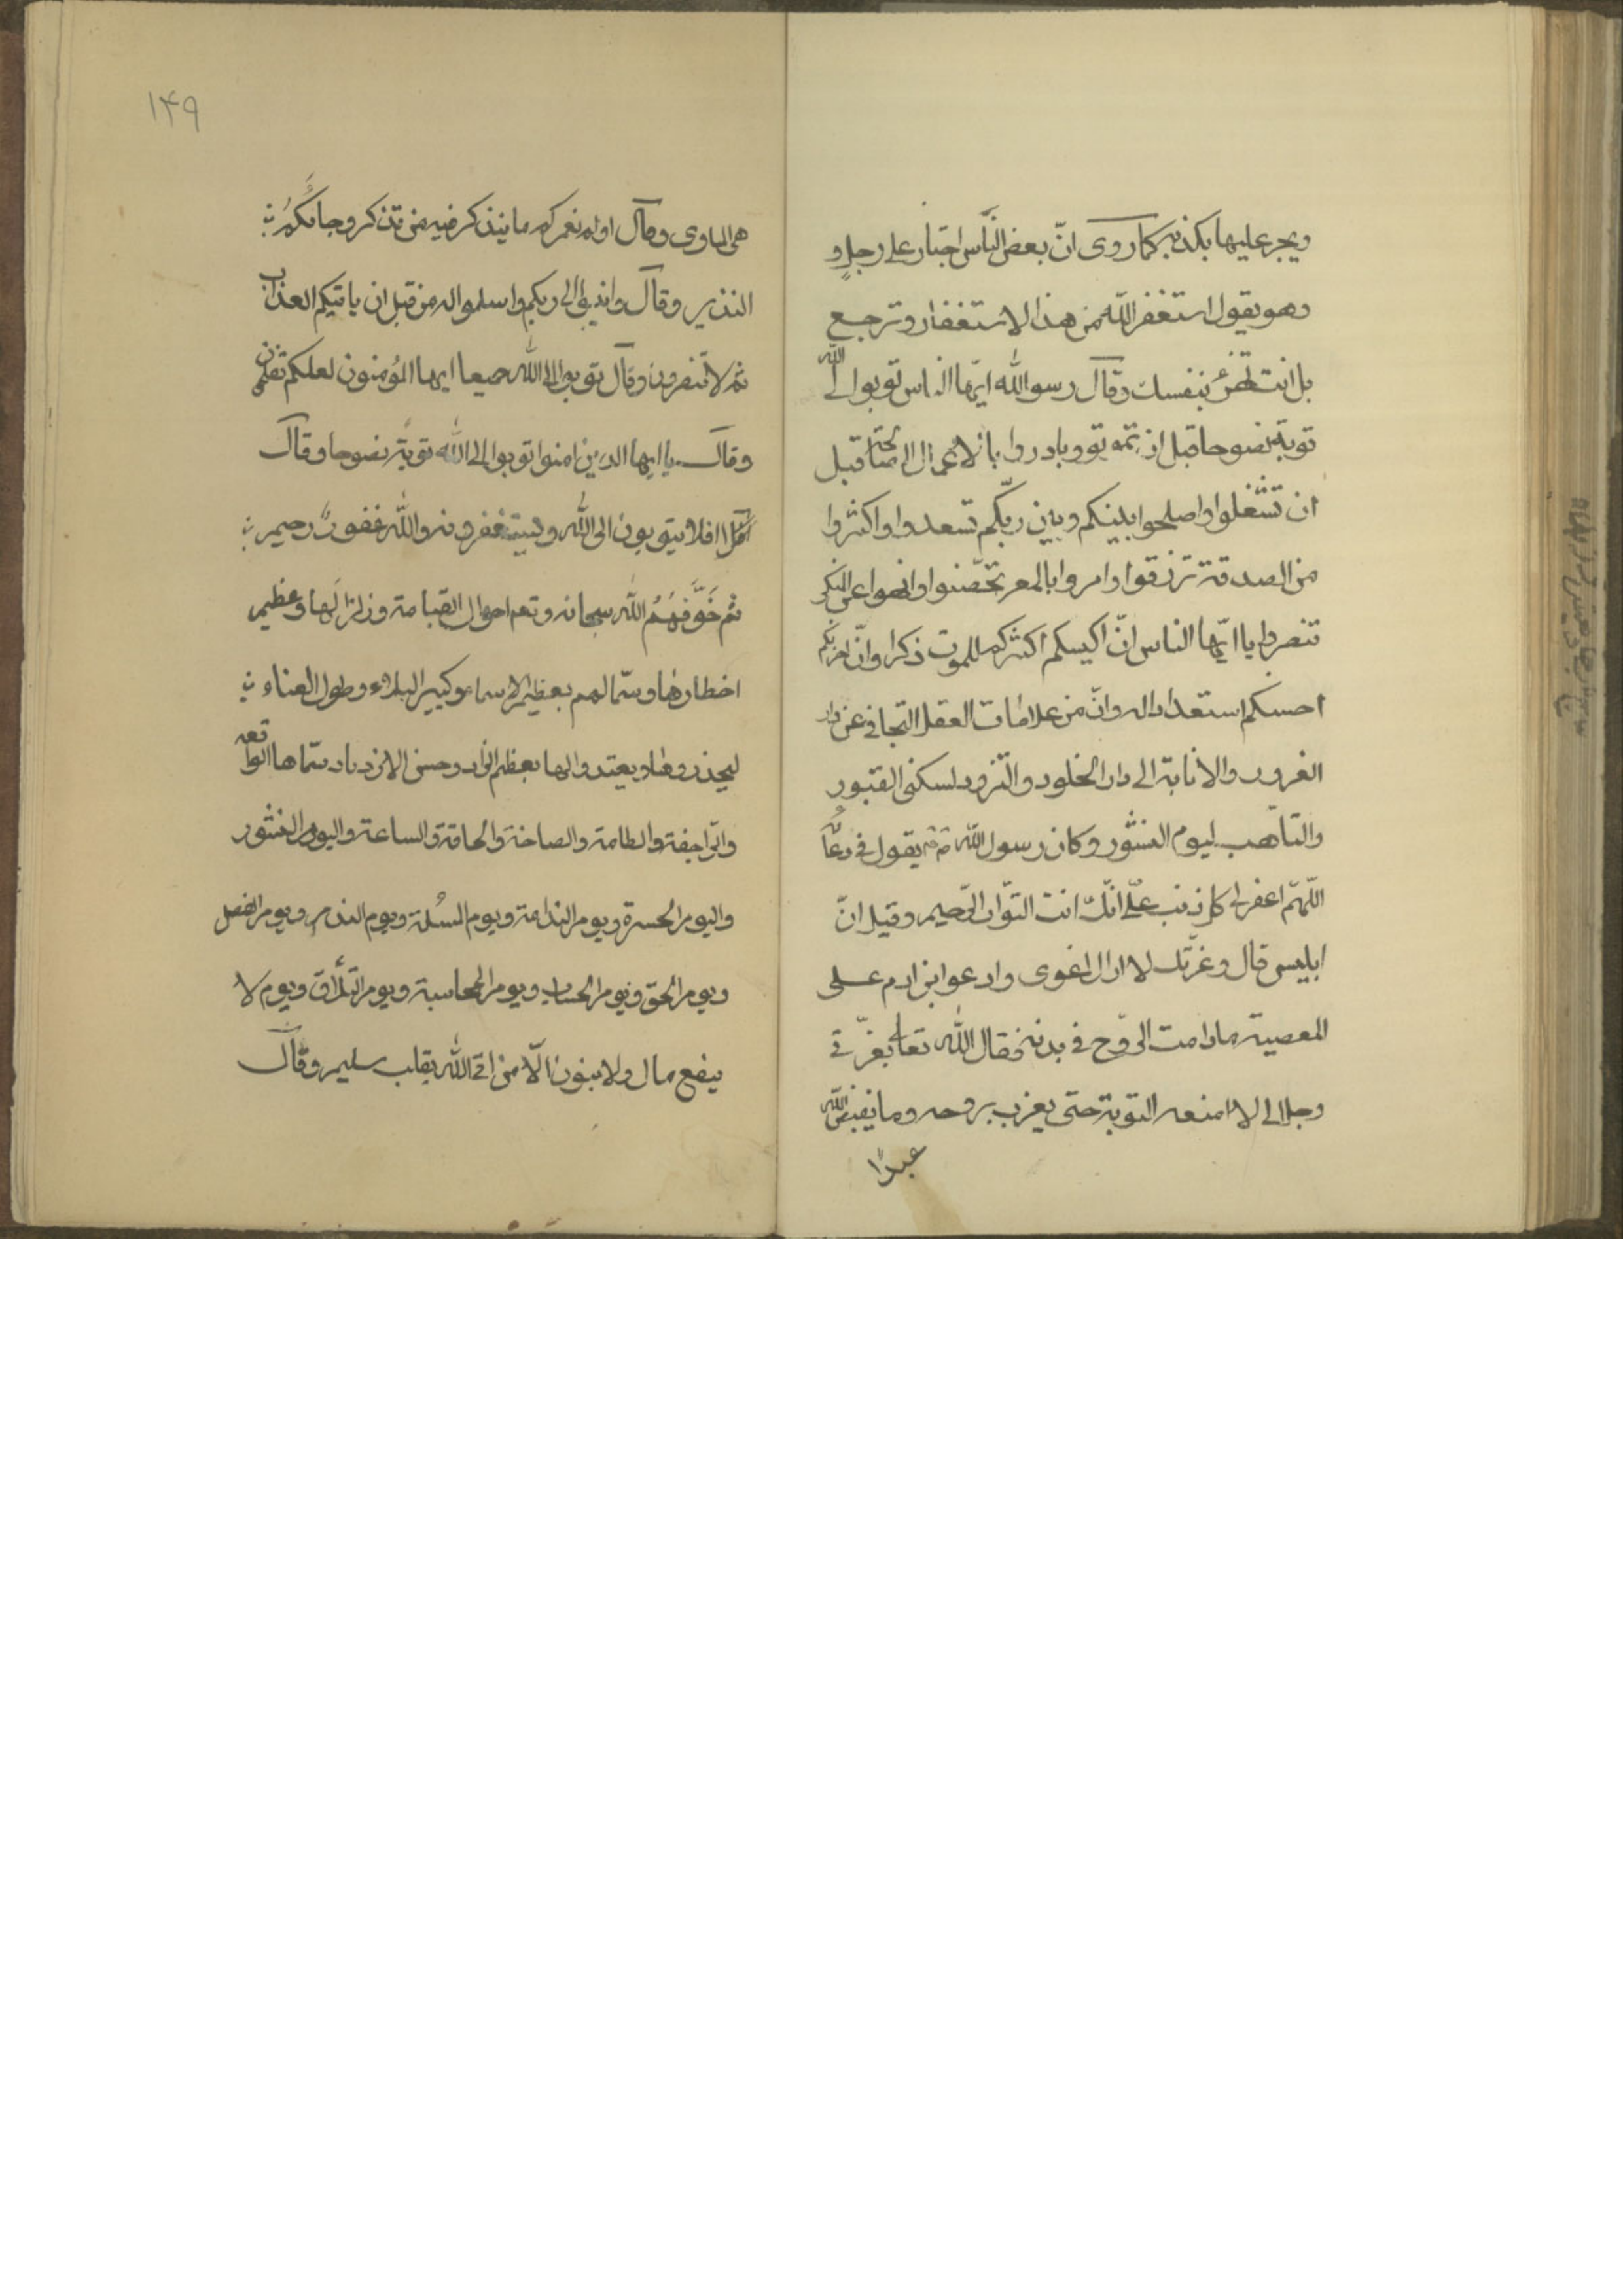 ويجر عليها بكذبه كما روى انّ بعض النّاس اجتاز على رجلٍ و
وهو يقول استغفر الله من هذا الاستغفار وترجع
بل انت بنفسك وقال رسو الله ايّها الناس توبوا الى الله
توبة نصوحا قبل ان تموتوا وبادروا بالاعمال الصالحة قبل
ان تشغلوا واصلحوا بينكم وبين ربّكم تسعدوا واكثروا
من الصدقة ترزقوا وامروا بالمعر تحصّنوا وانهوا عن المنكر
تنصروا يا ايّها الناس انّ اكيسكم اكثركم للموت ذكرا وانّ
احسنكم استعدادا له وانّ من علامات العقل التجافى عن دار
الغرور والانابة الى دار الخلود والتزود لسكنى القبور
والتأهب ليوم النشور وكان رسول الله يقول فى دعا
اللّهمّ اغفر لى كل ذنب علىّ انّك انت التوّاب الرّحيم وقيل انّ
ابليس قال وعزّتك لا ازال اغوى وادعوا ابن ادم على
المعصية ما دامت الرّوح فى بدنه فقال الله تعالى بعزّتى
وجلالى لا امنعه التوبة حتى يعزب بروحه وما يقبض الله
عبدًا
۱۴۹
هى الماوى وقال اولم نعمركم ما يتذكر فيه من تذكر وجائكُمُ
النذير وقال وانيبوا الى ربكم واسلموا له من قبل ان ياتيكم العذاب
ثم لا تنصرون وقال توبوا الى الله جميعا ايها المؤمنون لعلكم تفلحون
وقال يا ايها الذين امنوا توبوا الى الله توبةً نصوحا وقال
افلا يتوبون الى الله ويستغفرونه والله غفورٌ رحيم
ثم خَوَّفَهُمُ الله سبحانه وتعم احوال القيامة وزلزالها وعظيم
اخطارها وسمّا لهم بعظيم الاسماء وكبير البلاء وطول العناء
ليحذروها ويعتدوا لها بعظم الزاد وحسن الازدياد سمّاها الواقعه
والرّاجفة والطامة والصاخة والحاقة والساعة واليوم النشور
واليوم الحسرة ويوم الندامة ويوم المسئلة ويوم الندم ويوم الفصل
ويوم الحق ويوم الحساب ويوم المحاسبة ويوم التلاق ويوم لا
ينفع مال ولا بنون الّا من اتى الله بقلب سليم وقال